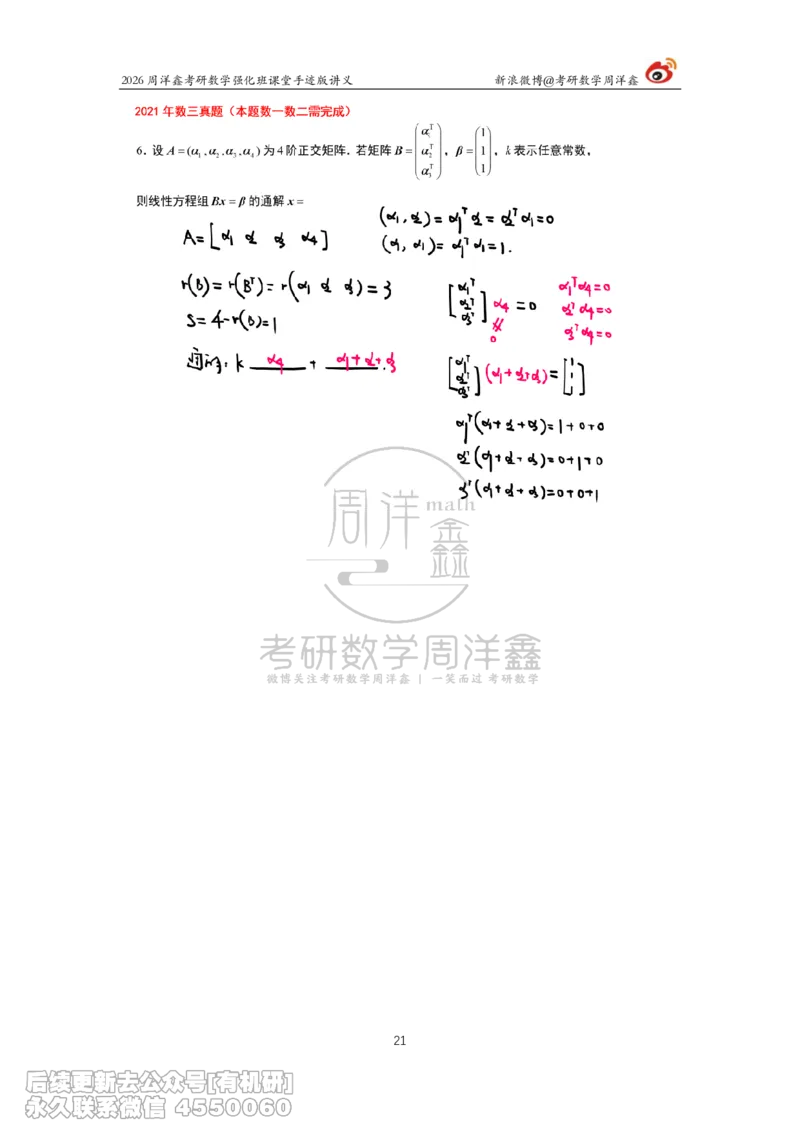 2026 周洋鑫考研数学强化班课堂手迹版讲义 新浪微博@考研数学周洋鑫
2021 年数三真题（本题数一数二需完成）
6. 设 A = (α₁, α₂, α₃, α₄) 为 4 阶正交矩阵. 若矩阵 B = (α₁ᵀ α₂ᵀ α₃ᵀ), β = (1 1 1), k 表示任意常数,
则线性方程组 Bx = β 的通解 x =
(α₁, α₂) = α₁ᵀα₂ = α₂ᵀα₁ = 0
A = [α₁ α₂ α₃ α₄]
(α₁, α₁) = α₁ᵀα₁ = 1.
r(B) = r(Bᵀ) = r(α₁ α₂ α₃) = 3
[α₁ᵀ α₂ᵀ α₃ᵀ] α₄ = 0
α₁ᵀα₄ = 0
α₂ᵀα₄ = 0
α₃ᵀα₄ = 0
∦
0
S = 4 - r(B) = 1
通解: k α₄ + α₁+α₂+α₃.
[α₁ᵀ α₂ᵀ α₃ᵀ] (α₁+α₂+α₃) = [1 1 1]
α₁ᵀ(α₁+α₂+α₃) = 1+0+0
α₂ᵀ(α₁+α₂+α₃) = 0+1+0
α₃ᵀ(α₁+α₂+α₃) = 0+0+1
周洋鑫 math
考研数学周洋鑫
微博关注考研数学周洋鑫 | 一笑而过 考研数学
21
后续更新去公众号[有机研]
永久联系微信 4550060